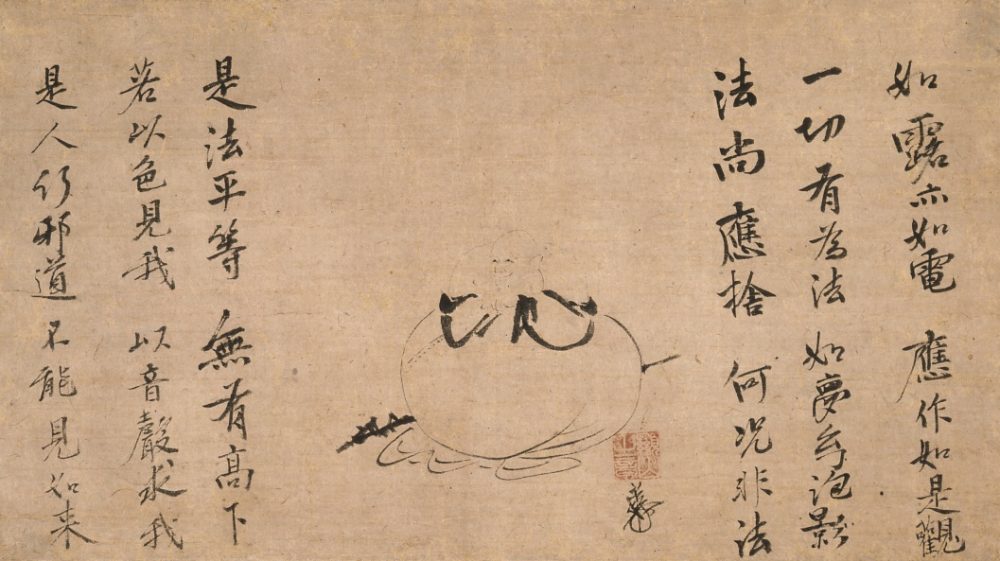 法尚應捨 何况非法
一切有為法 如夢幻泡影
如露亦如電 應作如是觀
是法平等 無有高下
若以色見我 以音聲求我
是人行邪道 不能見如来